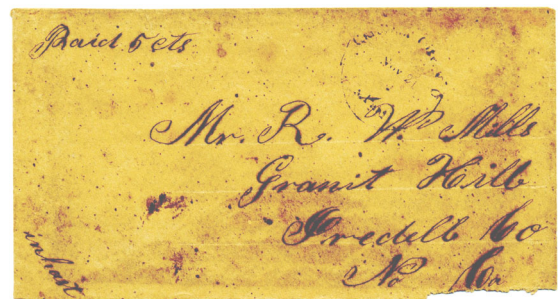 Paid 5 cts
Mr. R. W. Mills
Granit Hill
Iredell Co
No Ca